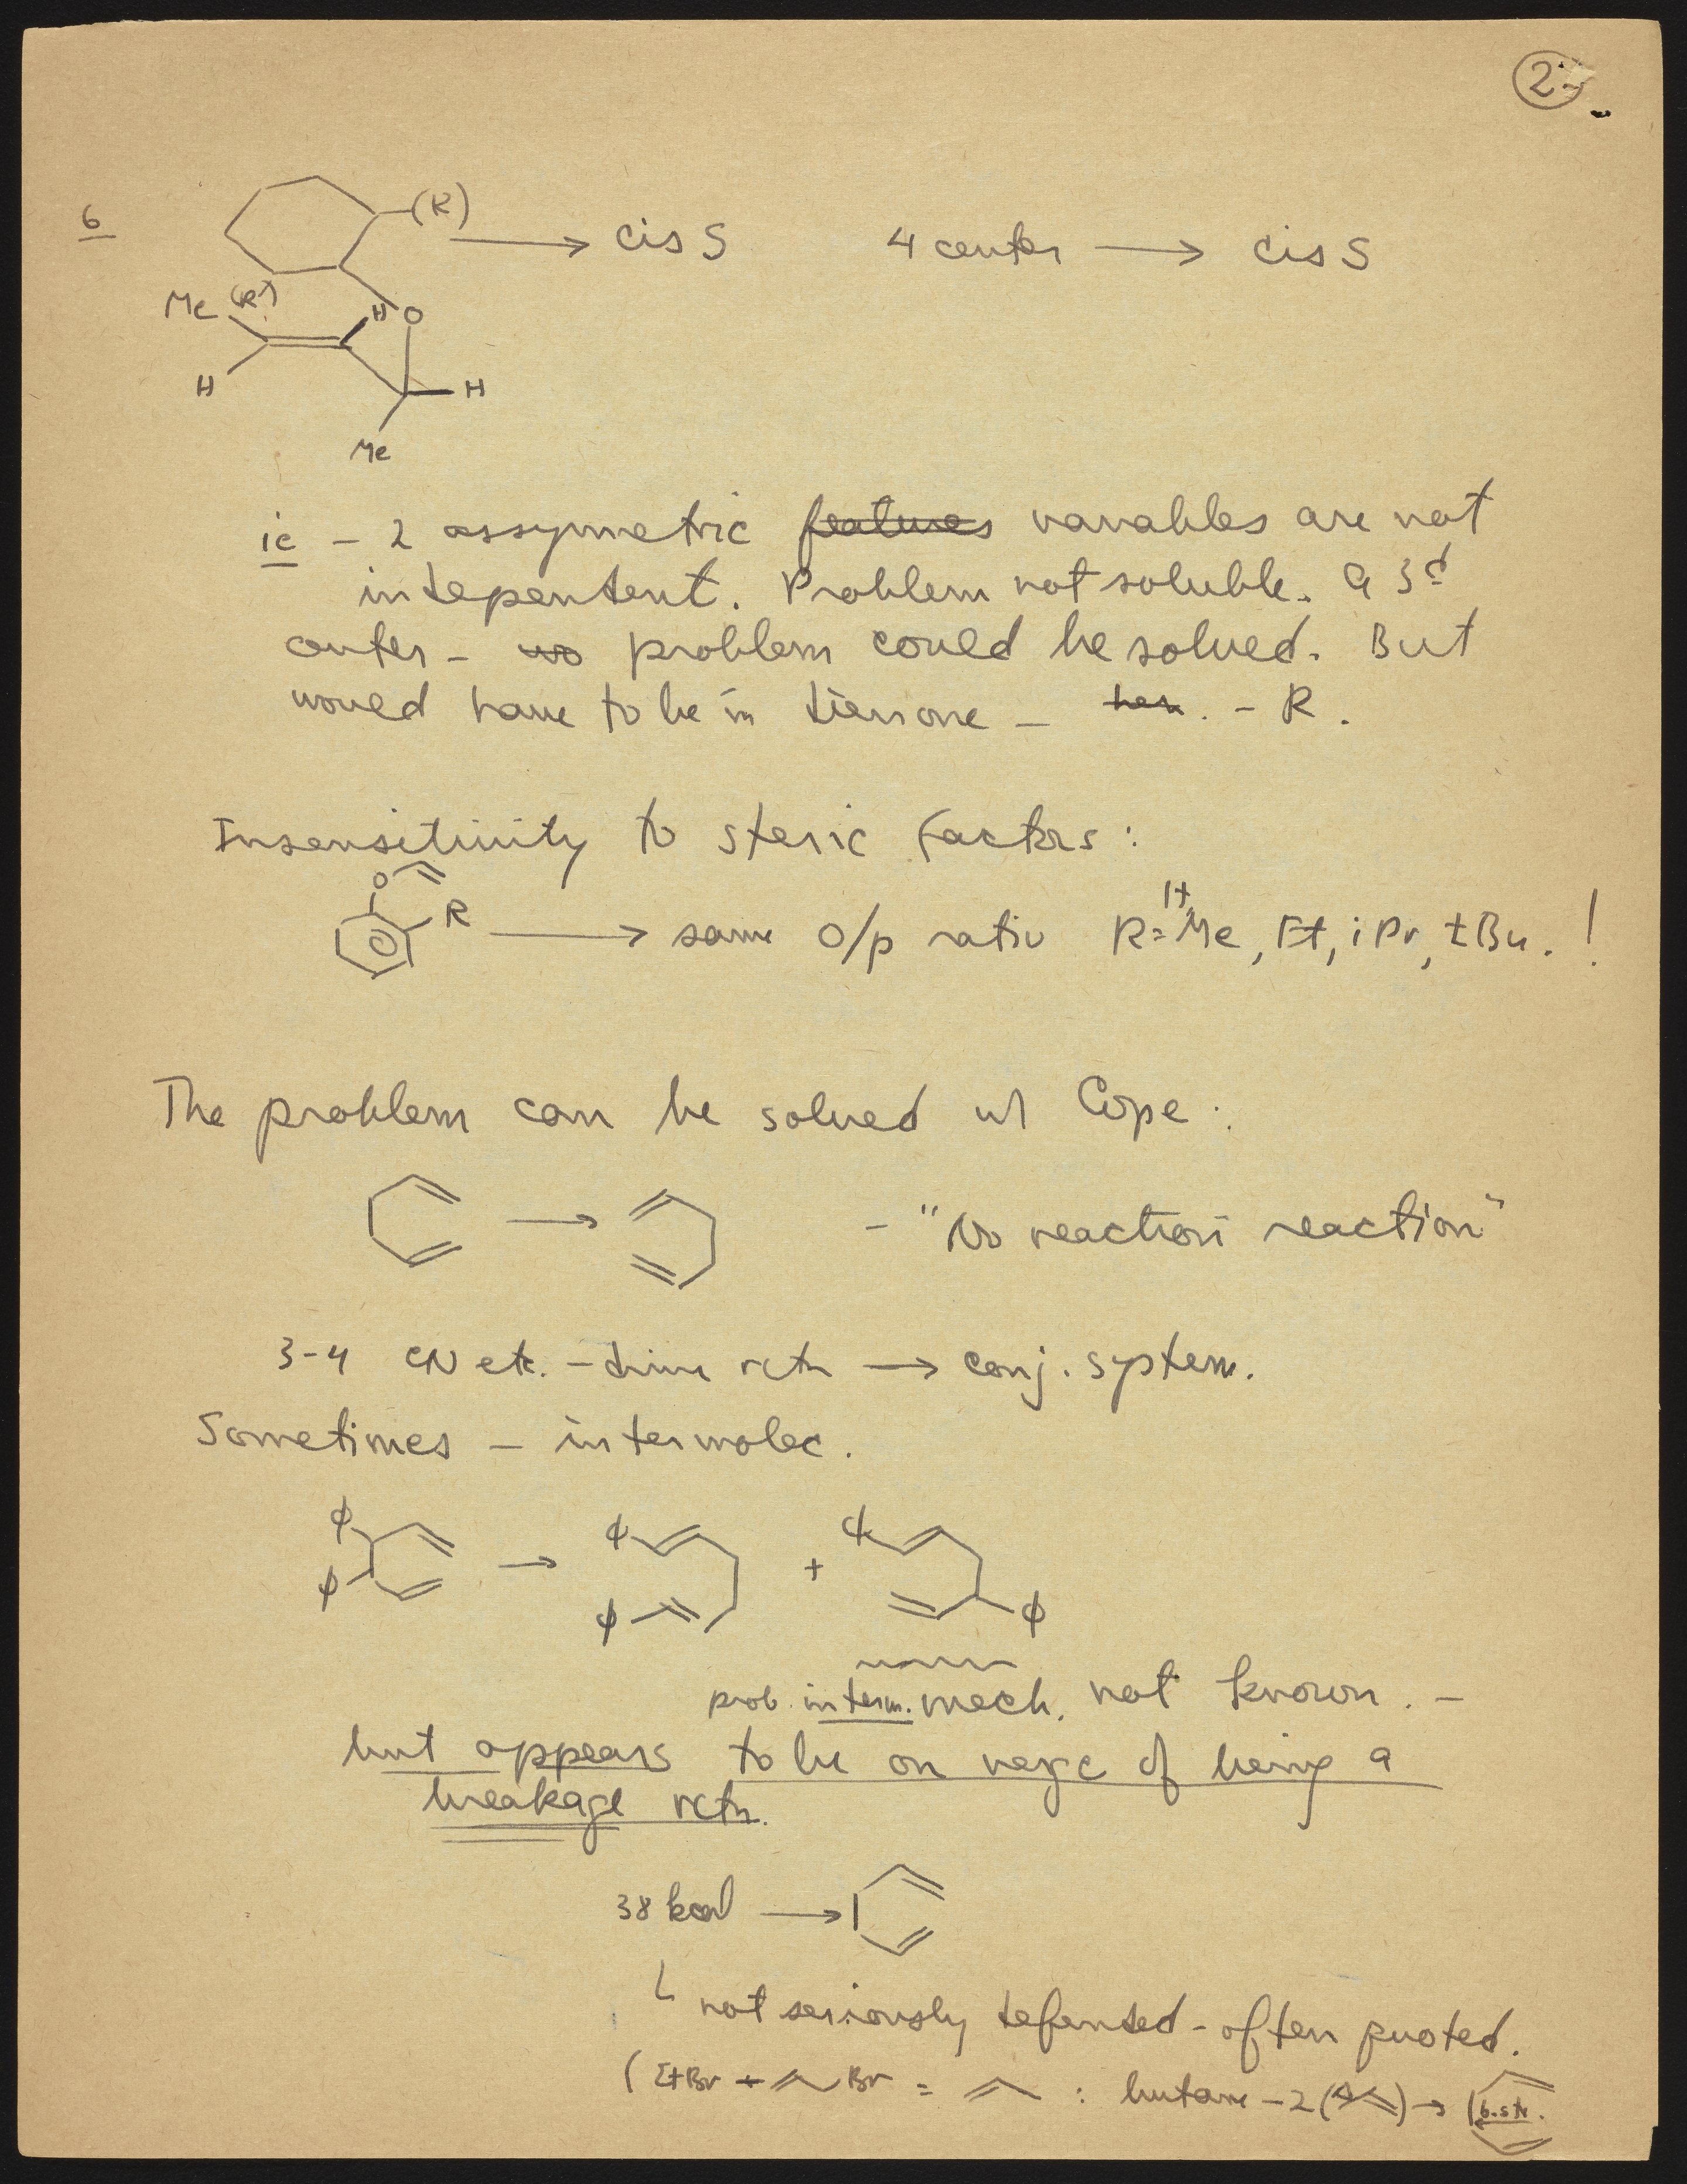 2
6
(R)
cis S 4 center → cis S
Me (R)
H O
H H
Me
ie – 2 assymetric features variables are not
indepentent. Problem not soluble. a 3d
center – problem could be solved. But
would have to be in dienone – – R.
Insensitivity to steric factors:
O
R → same o/p ratio R = H, Me, Et, iPr, tBu. !
The problem can be solved w/ Cope:
→ – "No reaction reaction"
3-4 CN etc. – rctn → conj. system.
Sometimes – intermolec.
φ φ φ
→ +
φ φ φ
prob. interm. mech. not known. –
but appears to be on verge of being a
breakage rctn.
38 kcal →
not seriously defended – often quoted.
(EtBr + Br = : butane – 2 ( ) → (b. str.